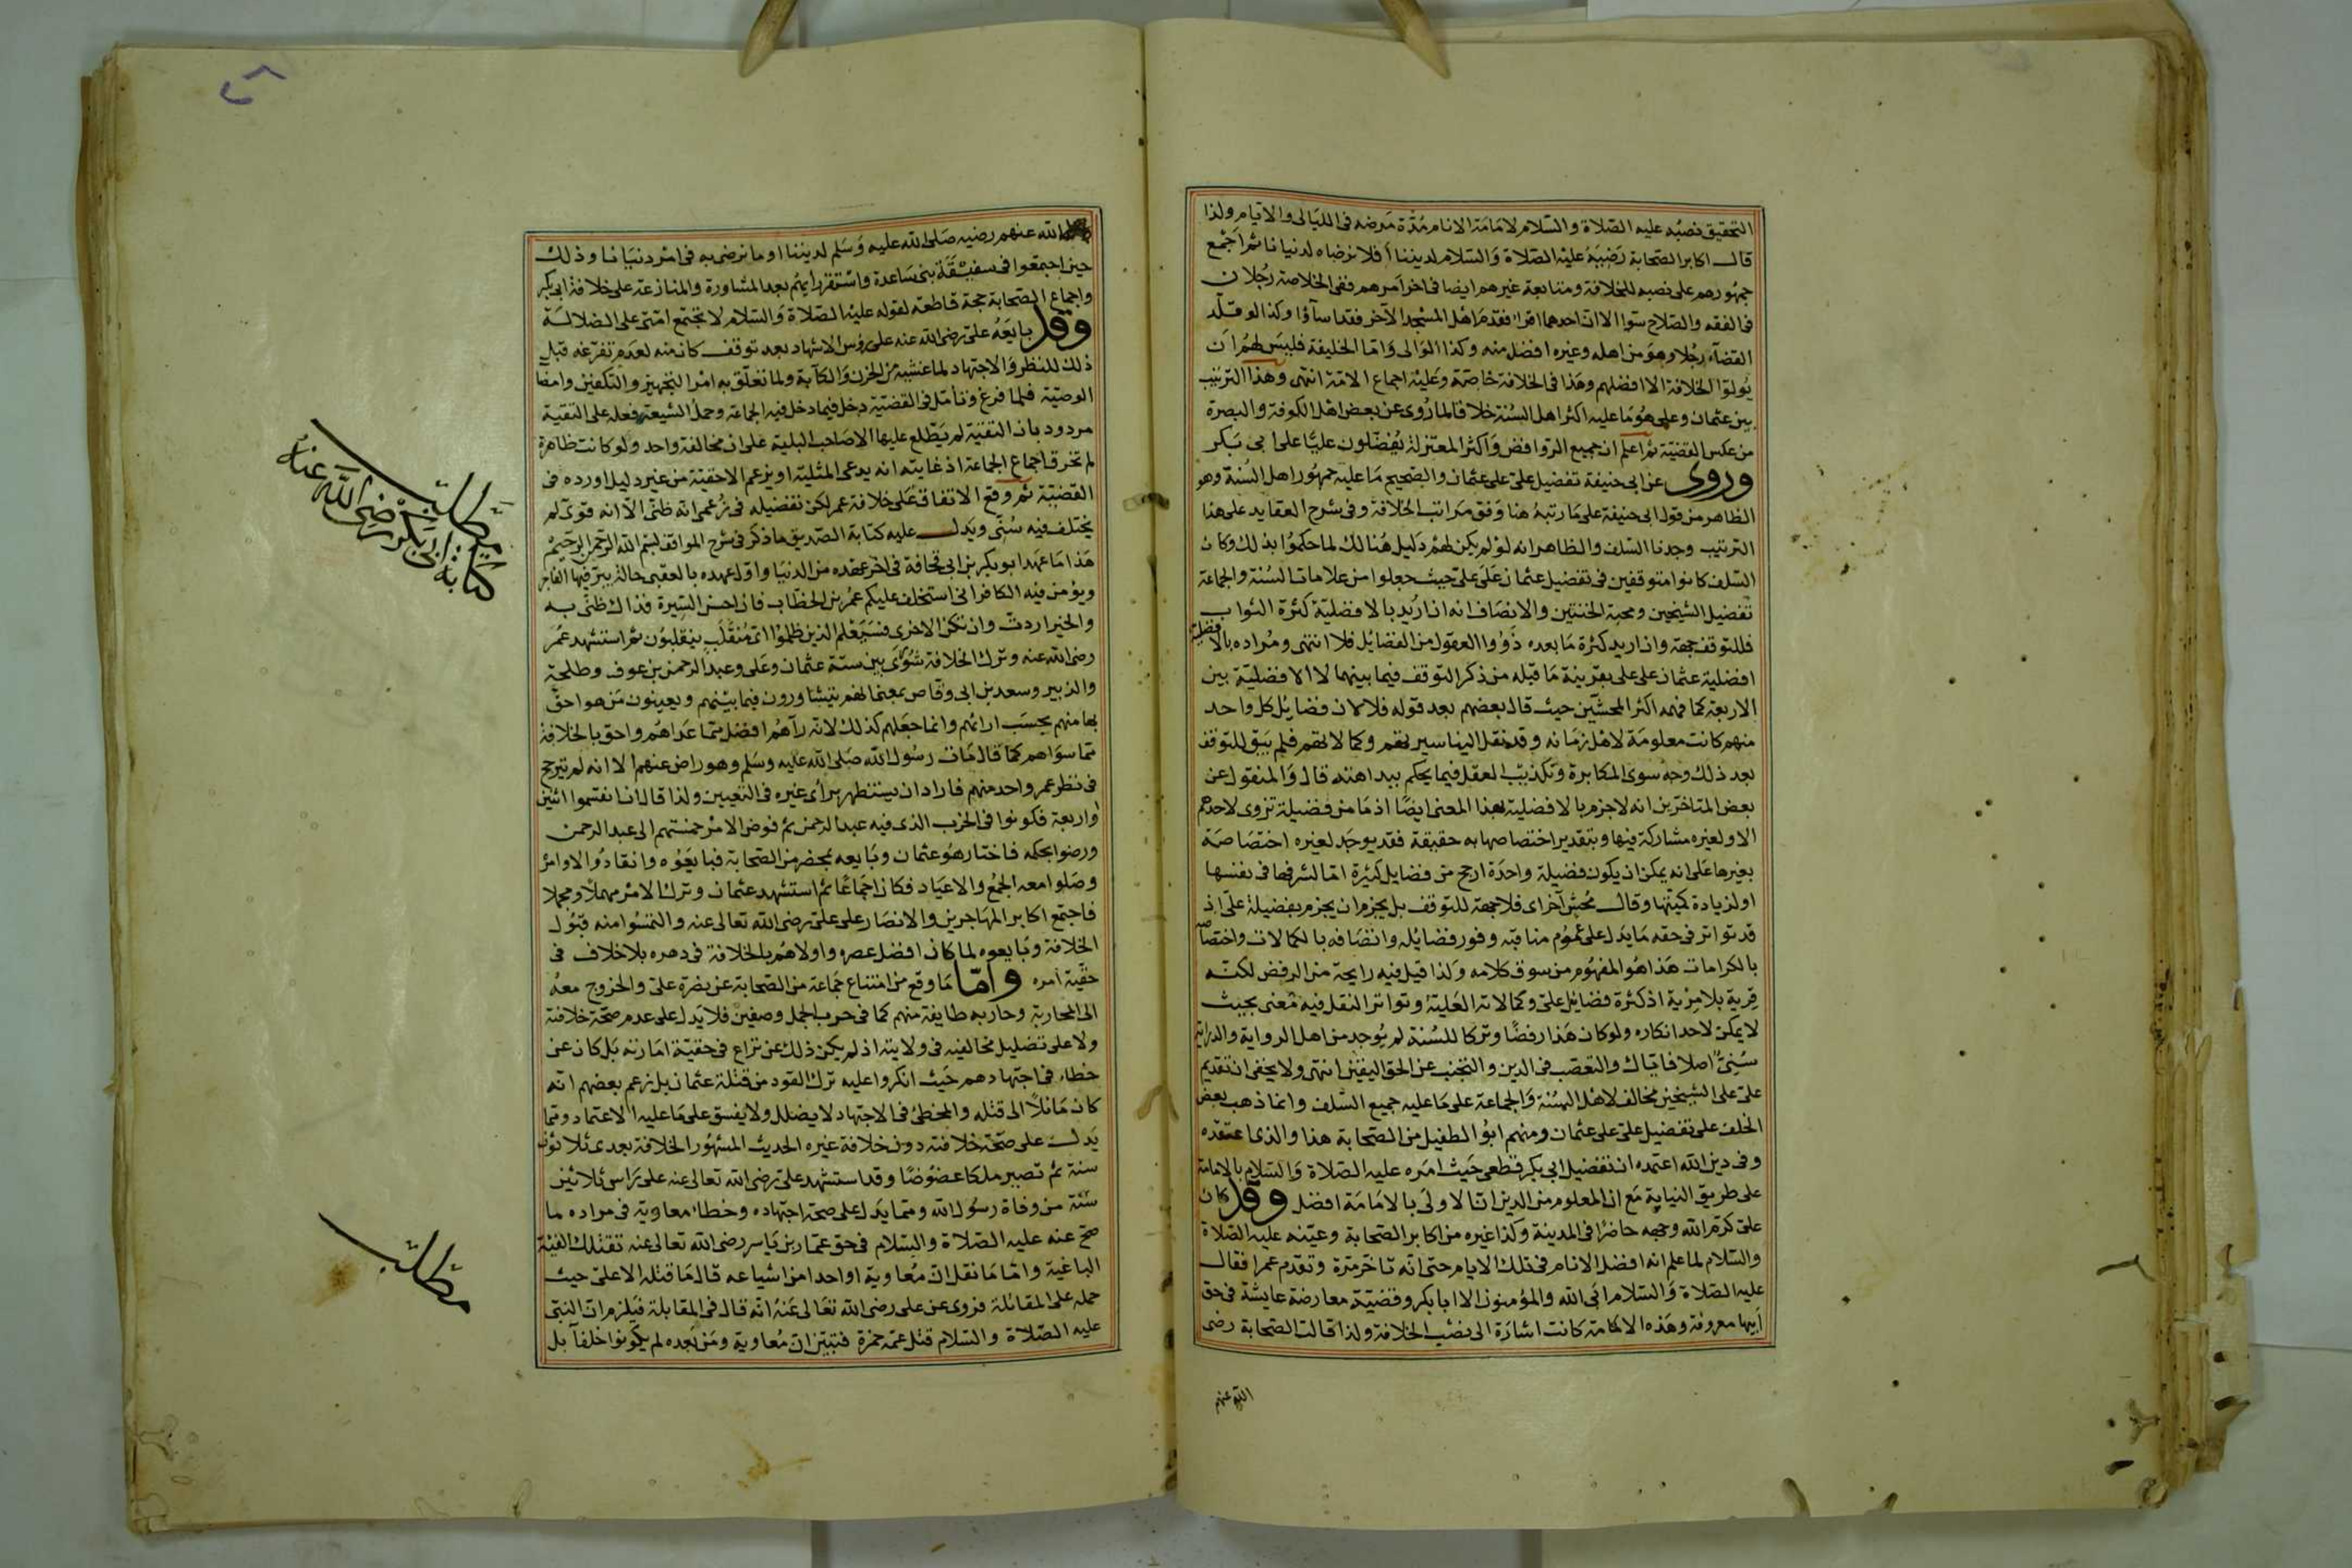 التحقيق نصبه عليه الصلاة والسلام لامامة الانام مدة مرضه فى الليالى والايام ولذا
قال اكابر الصحابة رضيه عليه الصلاة والسلام لديننا أفلا نرضاه لدنيانا ثم اجمع
جمهورهم على نصبه للخلافة ومتابعة غيرهم ايضا فى اخر امرهم ففى الخلاصة رجلان
فى الفقه والصلاح سواء الا ان احدهما اقرا فقدم اهل المسجد الآخر فقد اساؤا وكذا لو قلد
القضاء رجلا وهو من اهله وغيره افضل منه وكذا الوالى واما الخليفة فليس لهم ان
يولوا الخلافة الا افضلهم وهذا فى الخلافة خاصة وعليه اجماع الامة انتهى وهذا الترتيب
بين عثمان وعلى هو ما عليه اكثر اهل السنة خلافا لما روى عن بعض اهل الكوفة والبصرة
من عكس القضية ثم اعلم ان جميع الروافض واكثر المعتزلة يفضلون عليا على ابى بكر
وروى عن ابى حنيفة تفضيل على على عثمان والصحيح ما عليه جمهور اهل السنة وهو
الظاهر من قول ابى حنيفة على ما رتبه هنا وفق مراتب الخلافة وفى شرح العقايد على هذا
الترتيب وجدنا السلف والظاهر انه لو لم يكن لهم دليل هنالك لما حكموا بذلك وكان
السلف كانوا متوقفين فى تفضيل عثمان على على حيث جعلوا من علامات السنة والجماعة
تفضيل الشيخين ومحبة الختنين والانصاف انه ان اريد بالافضلية كثرة الثواب
فللتوقف جهة وان اريد كثرة ما بعده ذووا العقول من الفضائل فلا انتهى ومراده بالافضلية
افضلية عثمان على على بقرينة ما قبله من ذكر التوقف فيما بينهما لا الافضلية بين
الاربعة كما فهمه اكثر المحشين حيث قال بعضهم بعد قوله فلا لان فضائل كل واحد
منهم كانت معلومة لاهل زمانه وقد نقل الينا سيرتهم وكمالاتهم فلم يبق للتوقف
بعد ذلك وجه سوى المكابرة وتكذيب العقل فيما يحكم ببداهته قال والمنقول عن
بعض المتاخرين انه لا جزم بالافضلية بهذا المعنى ايضا اذ ما من فضيلة تروى لاحدهم
الا ولغيره مشاركة فيها وبتقدير اختصاصها به حقيقة فقد يوجد لغيره اختصاصه
بغيرها على انه يمكن ان يكون فضيلة واحدة ارجح من فضايل كثيرة اما لشرفها فى نفسها
او لزيادة كميتها وقال محش آخر اى فلا جهة للتوقف بل يجزم ان يجزم بفضيلة على اذ
قد تواتر فى حقه ما يدل على عموم مناقبه وفور فضايله واتصافه بالكمالات واختصاصه
بالكرامات هذا هو المفهوم من سوق كلامه ولذا قيل فيه رايحة من الرفض لكنه
فرية بلا مرية اذ كثرة فضايل على وكمالاته العلية وتواتر النقل فيه معنى بحيث
لا يمكن لاحد انكاره ولو كان هذا رفضا وتركا للسنة لم يوجد من اهل الرواية والدراية
سنى اصلا فاياك والتعصب فى الدين والتجنب عن الحق اليقين انتهى ولا يخفى ان تقديم
على على الشيخين مخالف لاهل السنة والجماعة على ما عليه جميع السلف وانما ذهب بعض
الخلف على تفضيل على على عثمان ومنهم ابو الطفيل من الصحابة هذا والذى اعتقده
وفى دين الله اعتمده ان تفضيل ابى بكر قطعى حيث امره عليه الصلاة والسلام بالامامة
على طريق النيابة مع ان المعلوم من الدين ان الاولى بالامامة افضل وقد كان
على كرم الله وجهه حاضرا فى المدينة وكذا غيره من اكابر الصحابة وعينه عليه الصلاة
والسلام لما علم انه افضل الانام فى تلك الايام حتى انه تاخر مرة وتقدم عمر فقال
عليه الصلاة والسلام ابى الله والمؤمنون الا ابا بكر وقضية معارضة عايشة فى حق
ابيها معروفة وهذه الامامة كانت اشارة الى نصب الخلافة ولذا قالت الصحابة رضى
الله عنهم
الله عنهم رضيه صلى الله عليه وسلم لديننا او ما نرضى به فى امر دنيانا وذلك
حين اجمتعوا فى سقيفة بنى ساعدة واستقر رأيهم بعد المشاورة والمنازعة على خلافة ابى بكر
واجماع الصحابة حجة قاطعة لقوله عليه الصلاة والسلام لا تجتمع امتى على الضلالة
وقد بايعه على رضى الله عنه على رؤس الاشهاد بعد توقف كان منه لعدم تفرغه قبل
ذلك للنظر والاجتهاد لما غشيه من الحزن والكآبة ولما تعلق به امر التجهيز والتكفين وامضا
الوصية فلما فرغ وتأمل فى القضية دخل فيما دخل فيه الجماعة وحمل الشيعة فعله على التقية
مردود بان التقية لم يطلع عليها الا صاحب البلية على ان مخالفة واحد ولو كانت ظاهرة
لم تخرق اجماع الجماعة اذ غايته انه يدعى المثلية او يزعم الاحقية من غير دليل اورده فى
القضية ثم وقع الاتفاق على خلافة عمر لكن تفضيله فى زعمى انه ظنى الا انه قوى لم
يختلف فيه سنى ويدل عليه كتابة الصديق ما ذكر فى شرح المواقف بسم الله الرحمن الرحيم
هذا ما عهد ابو بكر بن ابى قحافة فى اخر عهده من الدنيا واول عهده بالعقبى حالة يبر فيها الفاجر
ويؤمن فيه الكافر انى استخلف عليكم عمر بن الخطاب فان احسن السيرة فذاك ظنى به
والخير اردت وان تكن الاخرى فسيعلم الذين ظلموا اى منقلب ينقلبون ثم استشهد عمر
رضى الله عنه وترك الخلافة شورى بين ستة عثمان وعلى وعبد الرحمن بن عوف وطلحة
والزبير وسعد بن ابى وقاص بمعنى انهم يتشاورون فيما بينهم ويعينون من هو احق
بها منهم بحسب ارائهم وانما جعلهم كذلك لانه رآهم افضل مما عداهم واحق بالخلافة
مما سواهم كما قال مات رسول الله صلى الله عليه وسلم وهو راض عنهم الا انه لم يترجح
فى نظر عمر واحد منهم فاراد ان يستظهر برأى غيره فى التعيين ولذا قال ان انقسموا اثنين
واربعة فكونوا فى الحزب الذى فيه عبد الرحمن ثم فوض الامر خمستهم الى عبد الرحمن
ورضوا بحكمه فاختار هو عثمان وبايعه بمحضر من الصحابة فبايعوه وانقادوا لاوامر
وصلوا معه الجمع والاعياد فكان اجماعا ثم استشهد عثمان وترك الامر مهملا ومجملا
فاجتمع اكابر المهاجرين والانصار على على رضى الله تعالى عنه والتمسوا منه قبول
الخلافة وبايعوه لما كان افضل عصره واولاهم بالخلافة فى دهره بلا خلاف فى
حقية امره واما ما وقع من امتناع جماعة من الصحابة عن نصرة على والخروج معه
الى المحاربة وحاربه طايفة منهم كما فى حرب الجمل وصفين فلا يدل على عدم صحة خلافته
ولا على تضليل مخالفيه فى ولايته اذ لم يكن ذلك عن نزاع فى حقية امارته بل كان عن
خطاء فى اجتهادهم حيث انكروا عليه ترك القود من قتلة عثمان بل زعم بعضهم انه
كان مائلا الى قتله والمخطئ فى الاجتهاد لا يضلل ولا يفسق على ما عليه الاعتماد ومما
يدل على صحة خلافته دون خلافة غيره الحديث المشهور الخلافة بعدى ثلاثون
سنة ثم تصير ملكا عضوضا وقد استشهد على رضى الله تعالى عنه على راس ثلاثين
سنة من وفاة رسول الله ومما يدل على صحة اجتهاده وخطاء معاوية فى مراده ما
صح عنه عليه الصلاة والسلام فى حق عمار بن ياسر رضى الله تعالى عنه تقتلك الفئة
الباغية واما ما نقل ان معاوية او احدا من اشياعه قال ما قتله الا على حيث
حمله على المقاتلة فروى عن على رضى الله تعالى عنه انه قال فى المقابلة فيلزم ان النبى
عليه الصلاة والسلام قتل عمه حمزة فتبين ان معاوية ومن بعده لم يكونوا خلفآ بل
مطلب
كتابة ابى بكر رضى الله عنه
مطلب